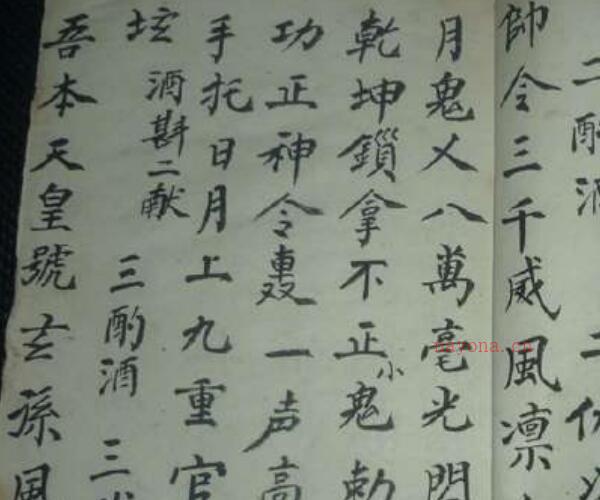 二酌酒 二
帥令三千威風凛
月鬼乂八萬毫光閃
乾坤鎖拿不正小鬼勅
功正神令轟一声高
手托日月上九重官
坛 酒斟二献 三酌酒 三
吾本天皇號玄孫風